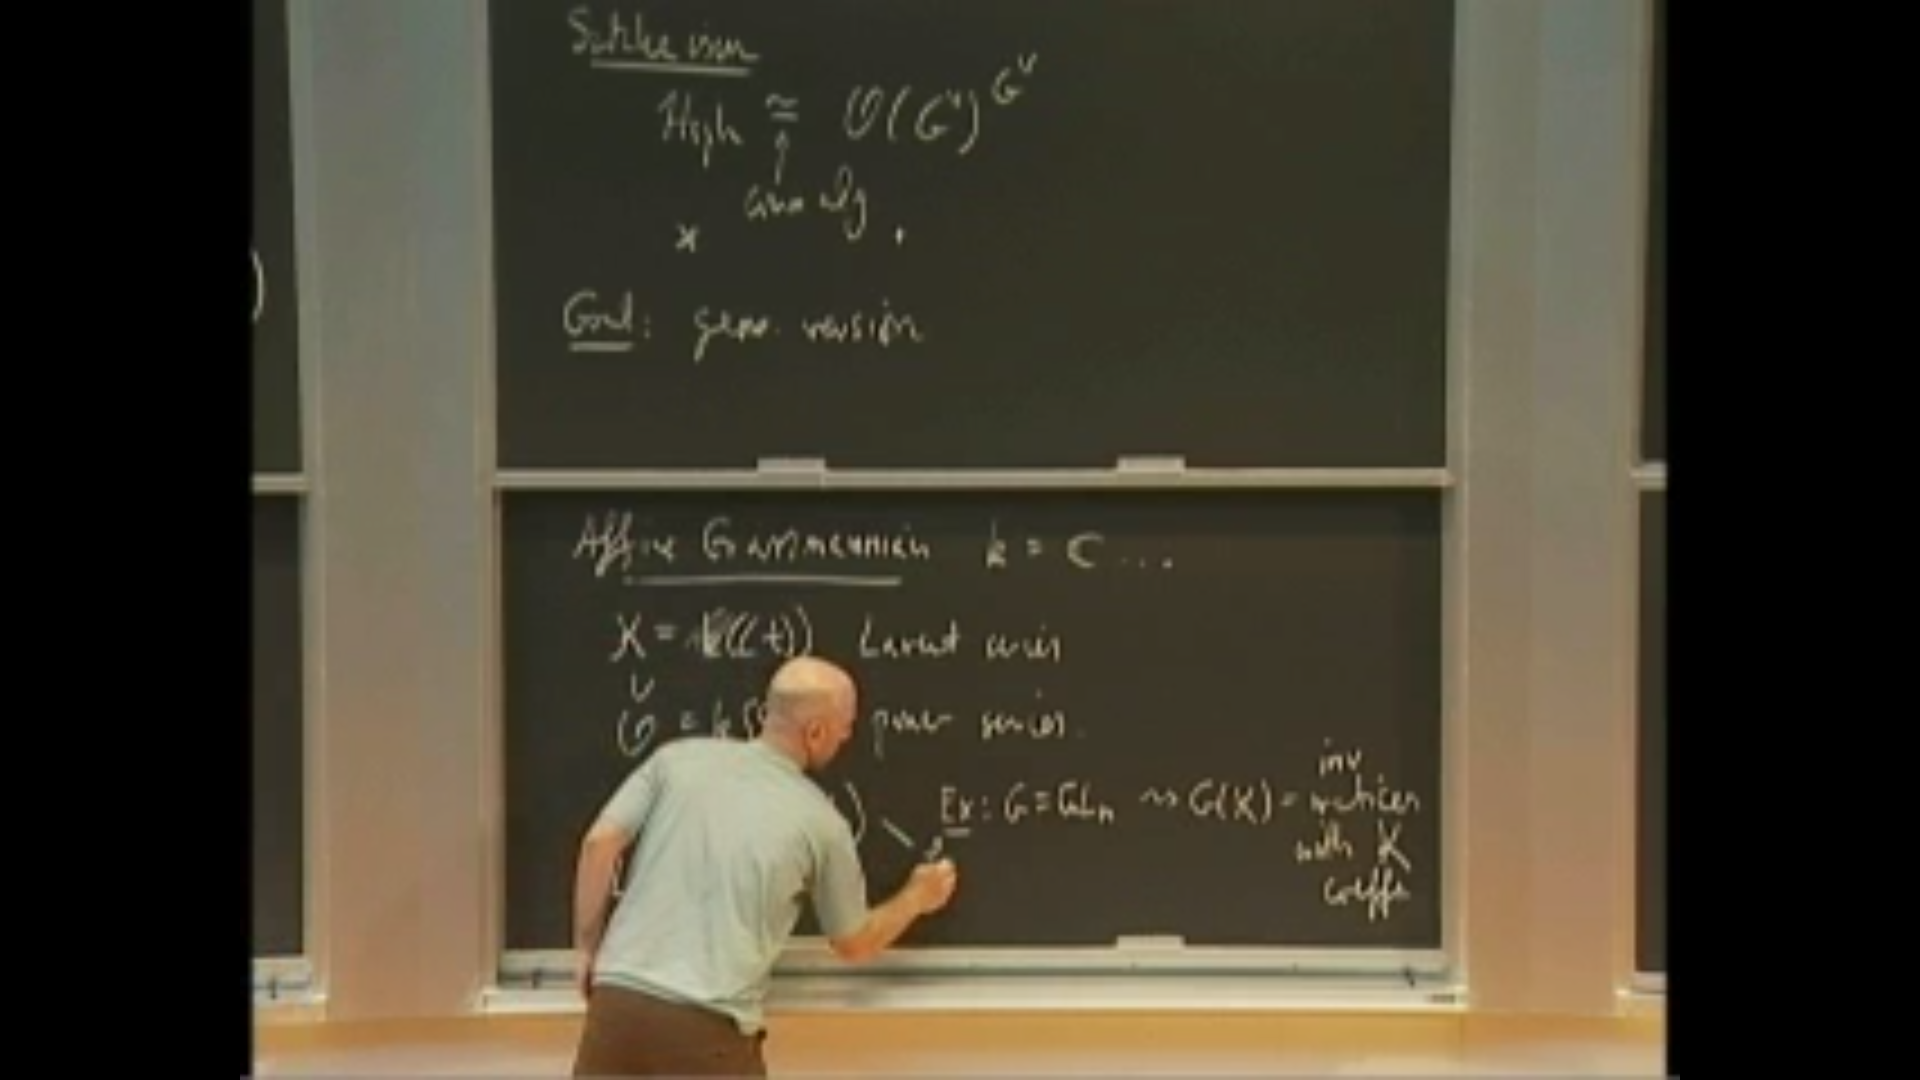 Satake isom
Hsph ≃ O(G^∨)^{G^∨}
↑
comm alg
* ·
Goal: geom. version
Affine Grassmannian k = C ...
K = k((t)) Laurent series
∪
O = k power series.
Ex: G = GLn ⇝ G(K) = inv
matrices
with K
coeffs